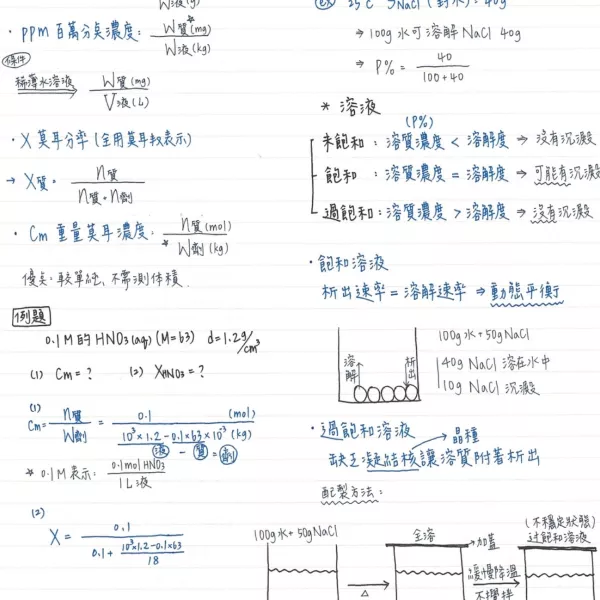 W液(g)
・ppm 百萬分矣濃度: W質(mg) / W液(kg)
條件
稀薄水溶液 → W質(mg) / V液(L)
・X 莫耳分率 (全用莫耳數表示)
→ X質 = n質 / n質+n劑
・Cm 重量莫耳濃度: n質(mol) / *W劑(kg)
優矣: 較單純、不需測体積.
例題
0.1M的HNO3(aq) (M=63) d=1.2g/cm³
(1) Cm=? (2) XHNO3=?
(1)
Cm= n質/W劑 = 0.1 (mol) / 10³×1.2-0.1×63×10⁻³ (kg)
液 - 質 = 劑
* 0.1M表示: 0.1mol HNO3 / 1L液
(2)
X = 0.1 / 0.1 + 10³×1.2-0.1×63 / 18
ex 25℃ NaCl (對水): 40g
→ 100g 水可溶解 NaCl 40g
→ P% = 40 / 100+40
* 溶液
(P%)
未飽和: 溶質濃度 < 溶解度 ⇒ 沒有沉澱
飽和: 溶質濃度 = 溶解度 ⇒ 可能有沉澱
過飽和: 溶質濃度 > 溶解度 ⇒ 沒有沉澱
・飽和溶液
析出速率 = 溶解速率 ⇒ 動態平衡
溶解 析出
100g水+50gNaCl
40g NaCl 溶在水中
10g NaCl 沉澱
・過飽和溶液 → 晶種
缺乏凝結核讓溶質附著析出
配製方法:
100g水+50gNaCl
△
全溶
加蓋
緩慢降溫
不攪拌
(不穩定狀態)
过飽和溶液